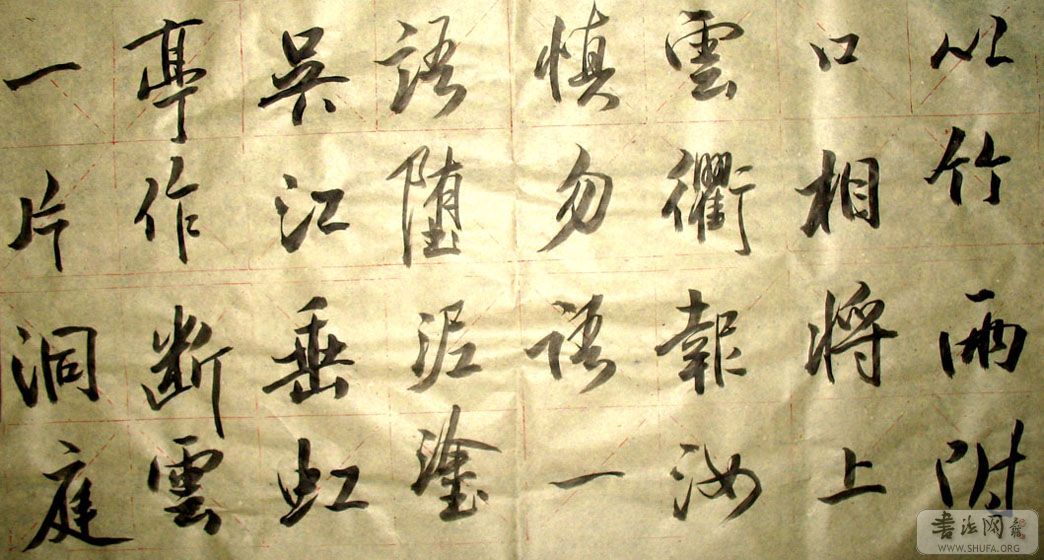 以竹兩附
口相將上
雲衢報汝
慎勿語一
語堕泥塗
吳江垂虹
亭作断雲
一片洞庭
書法网
WWW.SHUFA.ORG